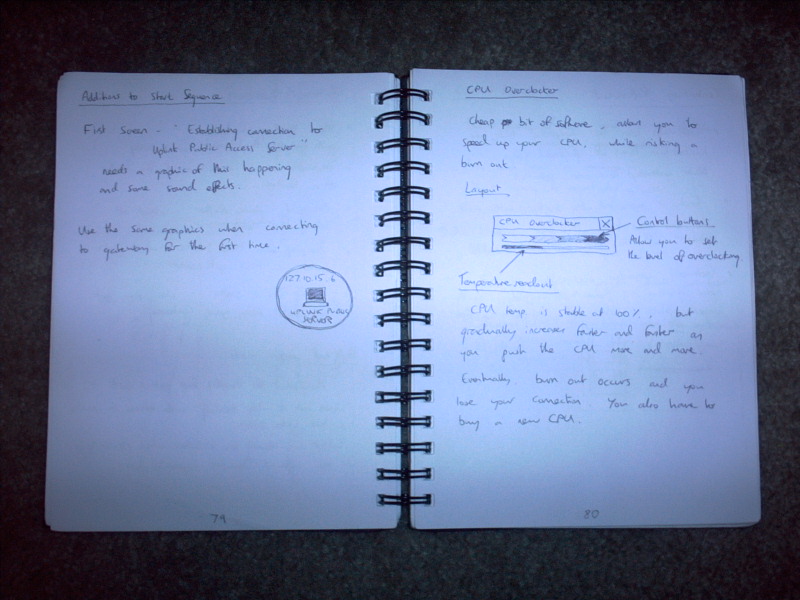 Additions to Start Sequence
First Screen - "Establishing connection to
Uplink Public Access Server"
needs a graphic of this happening
and some sound effects.
Use the same graphics when connecting
to gateway for the first time.
127.10.15.6
UPLINK PUBLIC
SERVER
79
CPU Overclocker
Cheap bit of software, allows you to
speed up your CPU, while risking a
burn out
Layout
CPU Overclocker X
Control buttons
Allow you to set
the level of overclocking
Temperature readout
CPU temp is stable at 100%, but
gradually increases faster and faster as
you push the CPU more and more.
Eventually burn out occurs and you
lose your connection. You also have to
buy a new CPU.
80